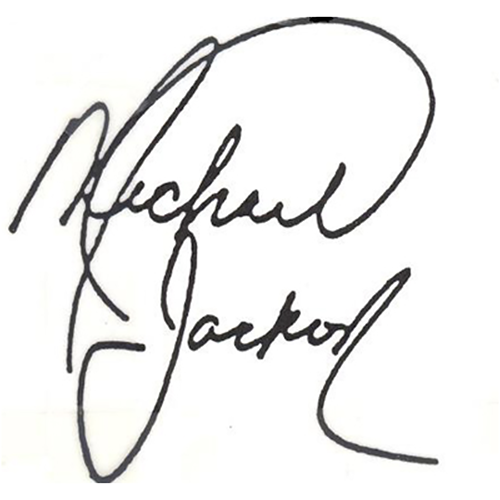 Michael
Jackson